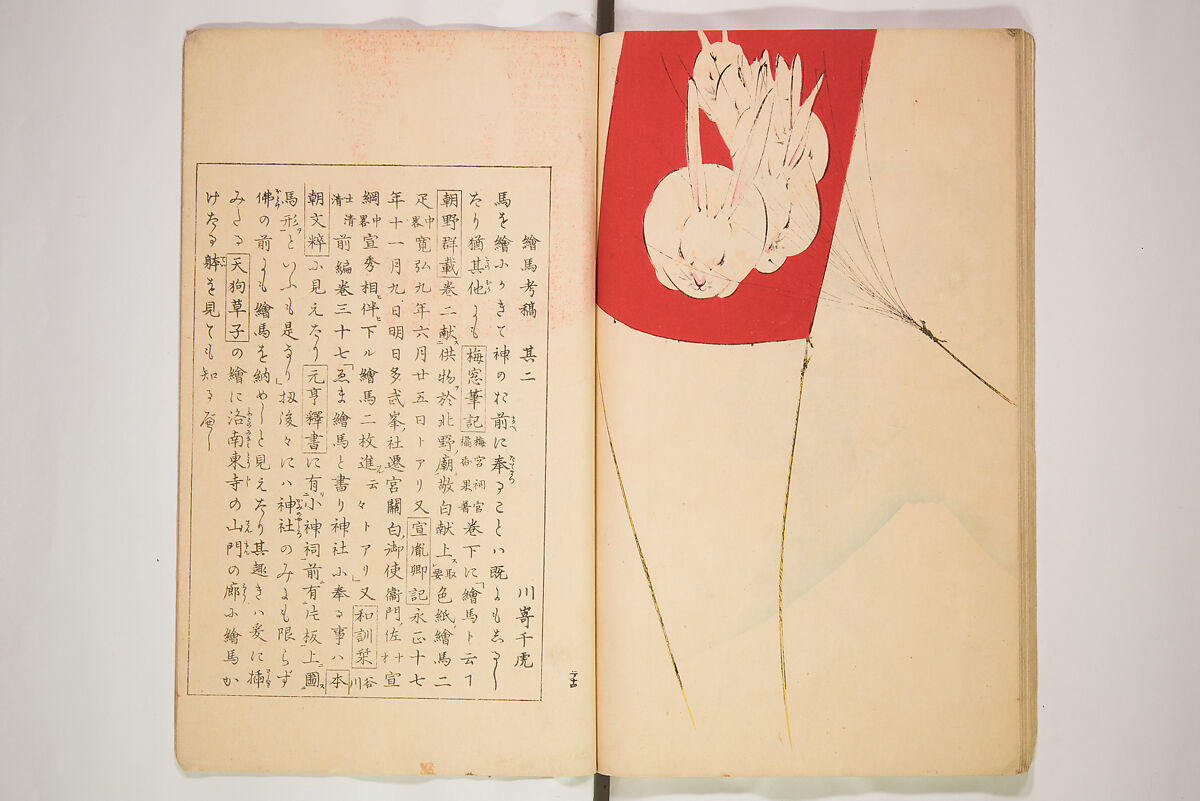 繪馬考稿 其二 川嵜千虎
馬を繪ふかきて神のお前に奉ることハ既にもしるし
たり猶其他にも梅窓筆記梅宮祠官橘 果 著巻下に「繪馬ト云丁
朝野群載巻二献供物於北野廟敬白献上取要色紙繪馬二
疋中畧寛弘九年六月廿五日トアリ又宣胤卿記永正十七
年十一月九日明日多武峯社遷宮關白御使衞門佐 宣
綱中畧宣秀相伴下ル繪馬二枚進云々トアリ」又和訓栞谷川
士清清前編巻三十七「ゑま繪馬と書り神社ふ奉る事ハ本
朝文粹ふ見えたり元亨釋書に有小神祠前有片板上圖
馬形といふも是なり」扨後々にハ神社のみにも限らず
佛の前にも繪馬を納めしと見えたり其趣きハ爰に挿
みたる天狗草子の繪に洛南東寺の山門の廊ふ繪馬か
けたる躰を見ても知る應し